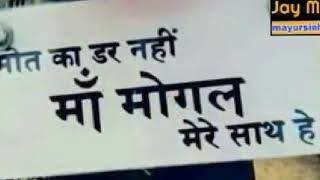 Jay M
mayursinh
मौत का डर नहीं
माँ मोगल
मेरे साथ हे